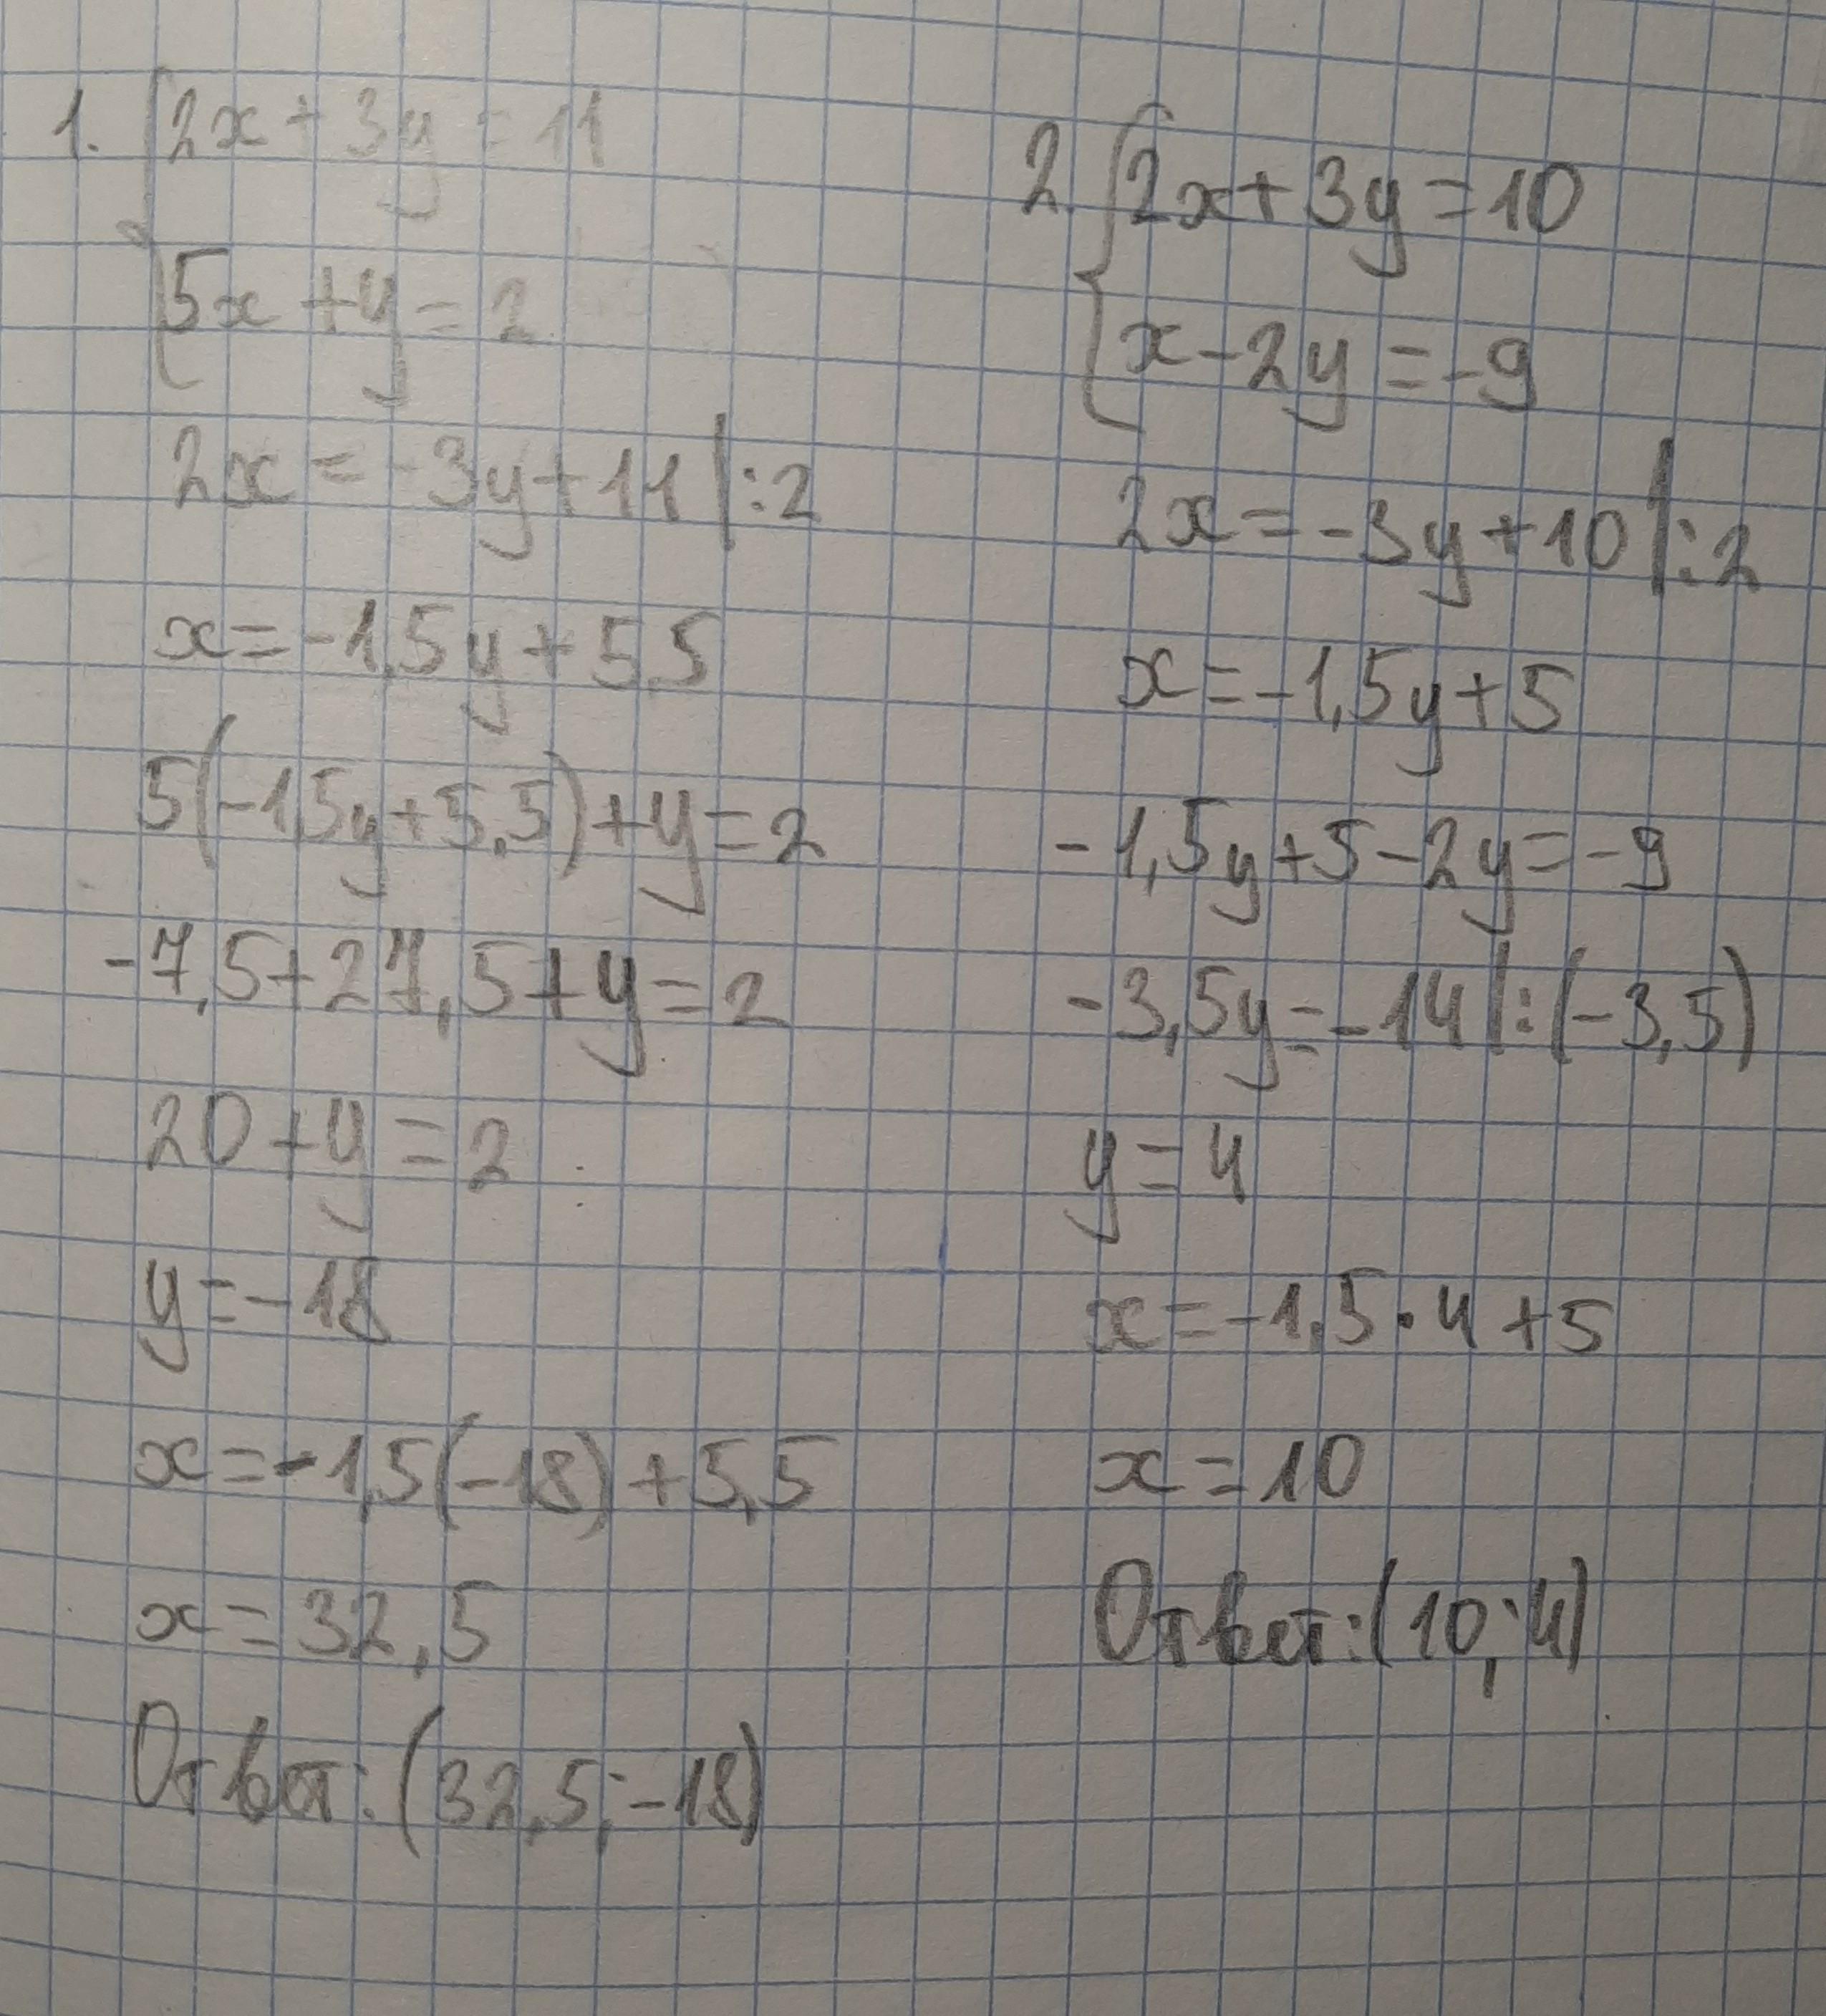 1. { 2x + 3y = 11
5x + y = 2
2x = -3y + 11 | :2
x = -1,5y + 5,5
5(-1,5y + 5,5) + y = 2
-7,5 + 27,5 + y = 2
20 + y = 2
y = -18
x = -1,5(-18) + 5,5
x = 32,5
Ответ: (32,5; -18)
2. { 2x + 3y = 10
x - 2y = -9
2x = -3y + 10 | :2
x = -1,5y + 5
-1,5y + 5 - 2y = -9
-3,5y = -14 | :(-3,5)
y = 4
x = -1,5 · 4 + 5
x = 10
Ответ: (10; 4)